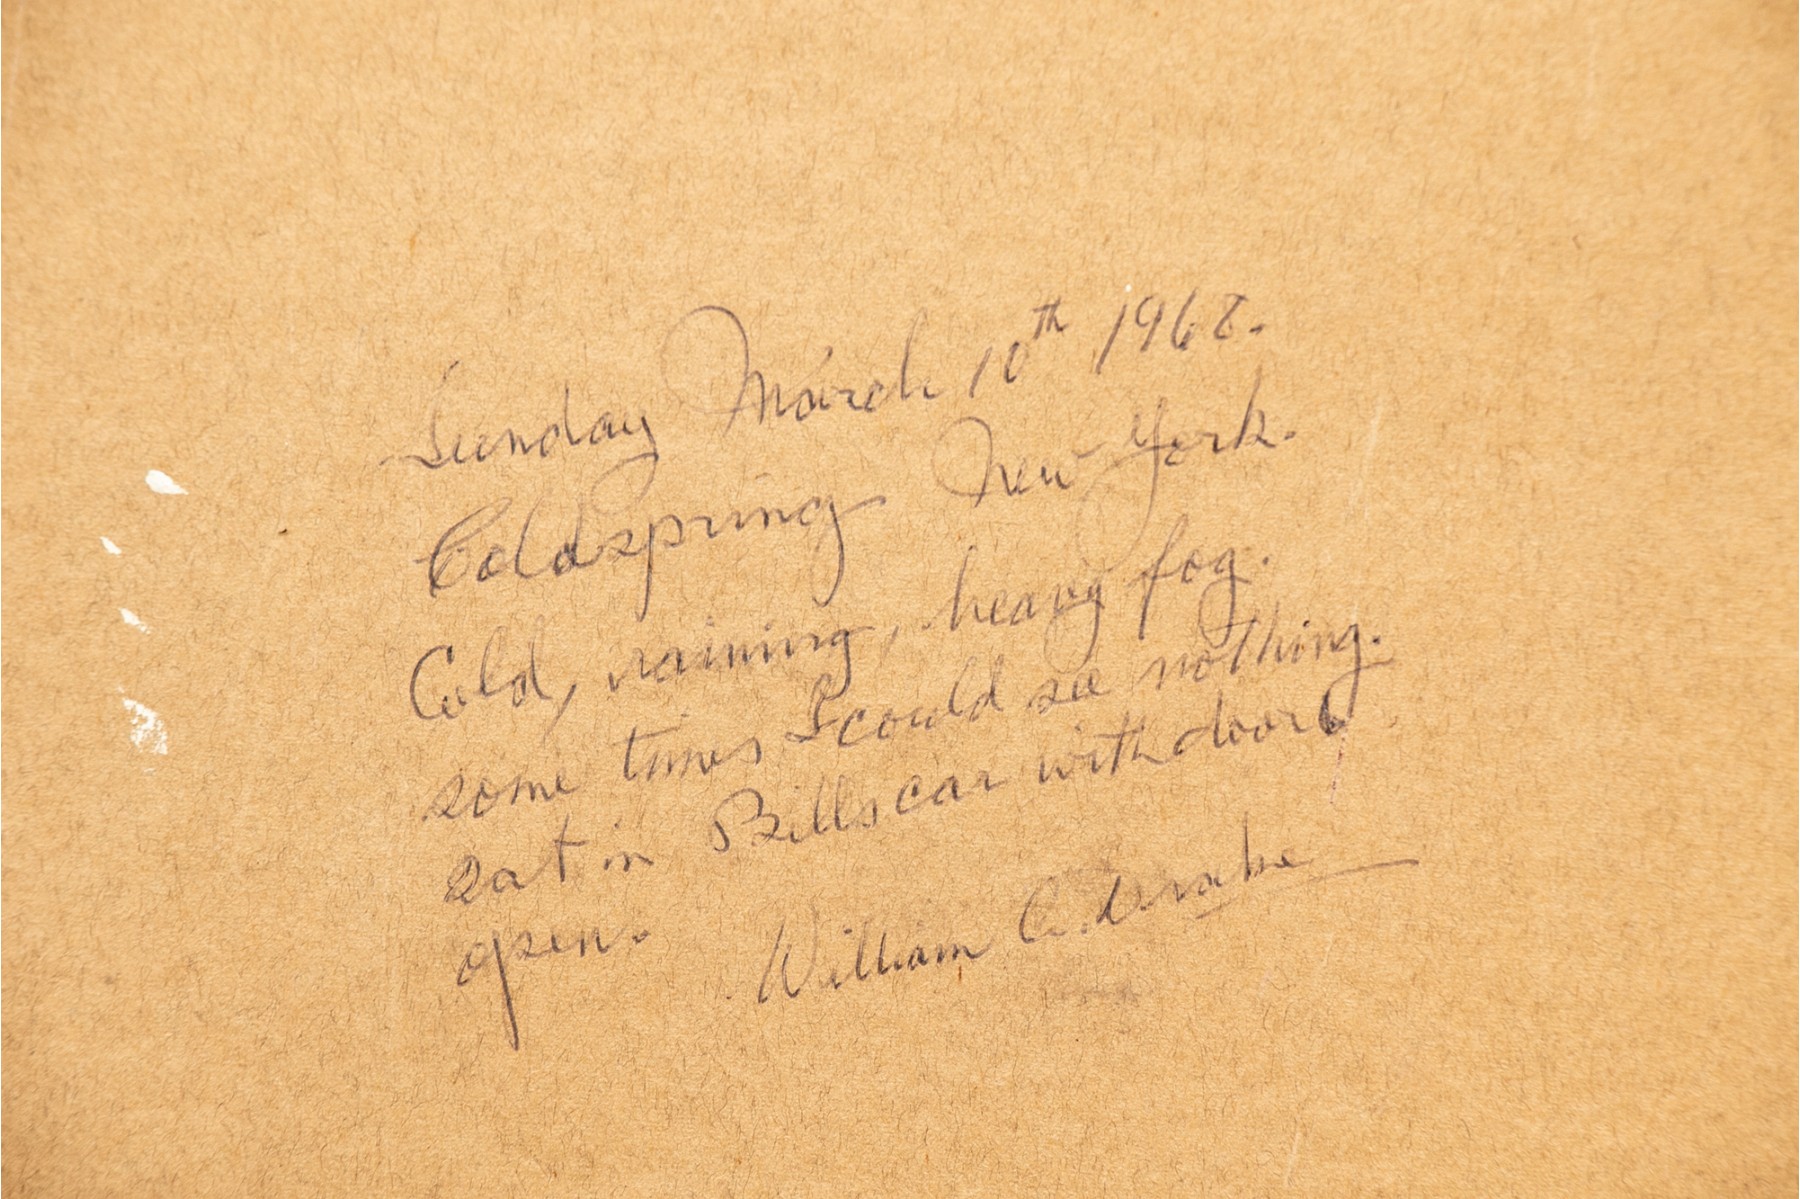 Sunday March 10th 1968.
Coldspring New York.
Cold, raining, heavy fog.
some times I could see nothing.
sat in Bills car with doors
open.
William A. Drake